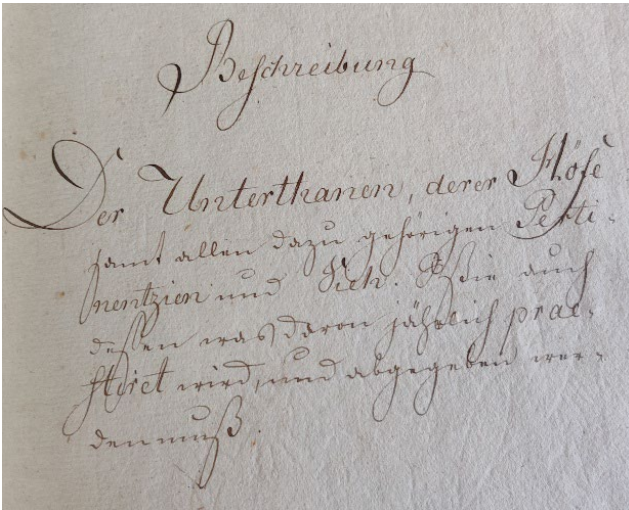 Beschreibung
Der Unterthanen, derer Höfe
samt allen dazu gehörigen Perti-
nentzien und Vieh. Wie auch
dessen was davon jährlich prae-
stiret wird, und abgegeben wer-
den muß.